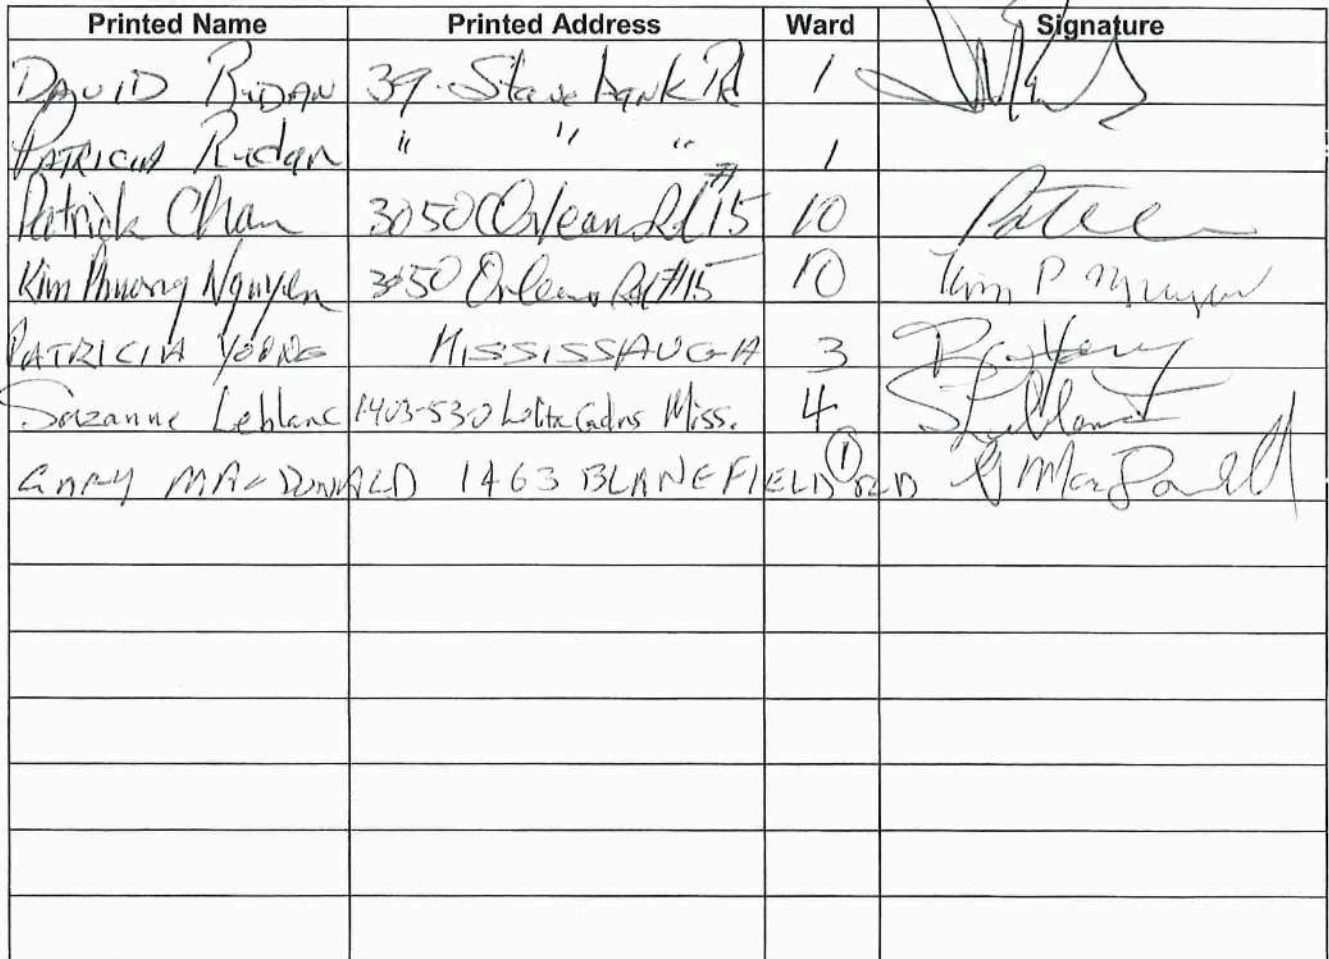 Printed Name Printed Address Ward Signature
DAVID RUDAN 39 Stavebank Rd 1
PATRICIA Rudan " " " 1
Patrick Chan 3050 Orlean Rd #15 10
Kim Phuong Nguyen 3050 Orleans Rd #15 10 Kim P Nguyen
PATRICIA YOUNG MISSISSAUGA 3
Suzanne Leblanc 1403-530 Lolita Gdns Miss. 4 SLeblanc
GARY MACDONALD 1463 BLANEFIELD RD 1 G MacDonald